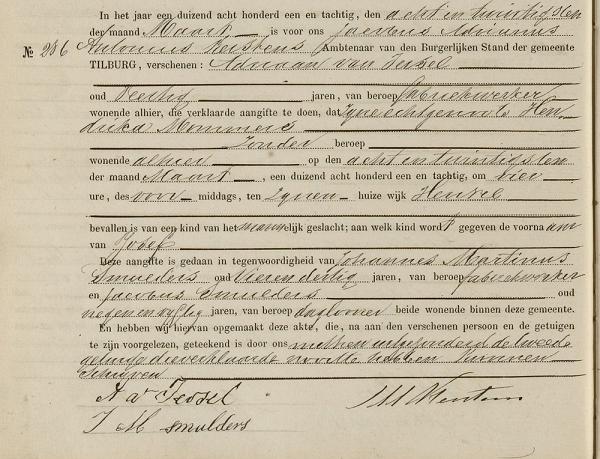 In het jaar een duizend acht honderd een en tachtig, den acht en twintigsten
der maand Maart is voor ons Jacobus Adrianus
№ 286 Antonius Kerstens Ambtenaar van den Burgerlijken Stand der gemeente
TILBURG, verschenen: Adriaan van Iersel
oud Veertig jaren, van beroep fabriekwerker
wonende alhier, die verklaarde aangifte te doen, dat zijne echtgenoote Hen-
drika Mommers
Zonder beroep
wonende alhier op den acht en twintigsten
der maand Maart, een duizend acht honderd een en tachtig, om vier
ure, des voor-middags, ten zijnen huize wijk Heukel
bevallen is van een kind van het mannelijk geslacht; aan welk kind wordt gegeven de voornaam
van Jozef
Deze aangifte is gedaan in tegenwoordigheid van Johannes Martinus
Smulders oud Vier en dertig jaren, van beroep fabriekwerker
en Jacobus Smulders oud
negen en vijftig jaren, van beroep daglooner beide wonende binnen deze gemeente.
En hebben wij hiervan opgemaakt deze akte, die, na aan den verschenen persoon en de getuigen
te zijn voorgelezen, geteekend is door ons met hen uitgezonderd de tweede
getuige die verklaarde nooit te hebben kunnen
schrijven
A v Iersel
J M smulders